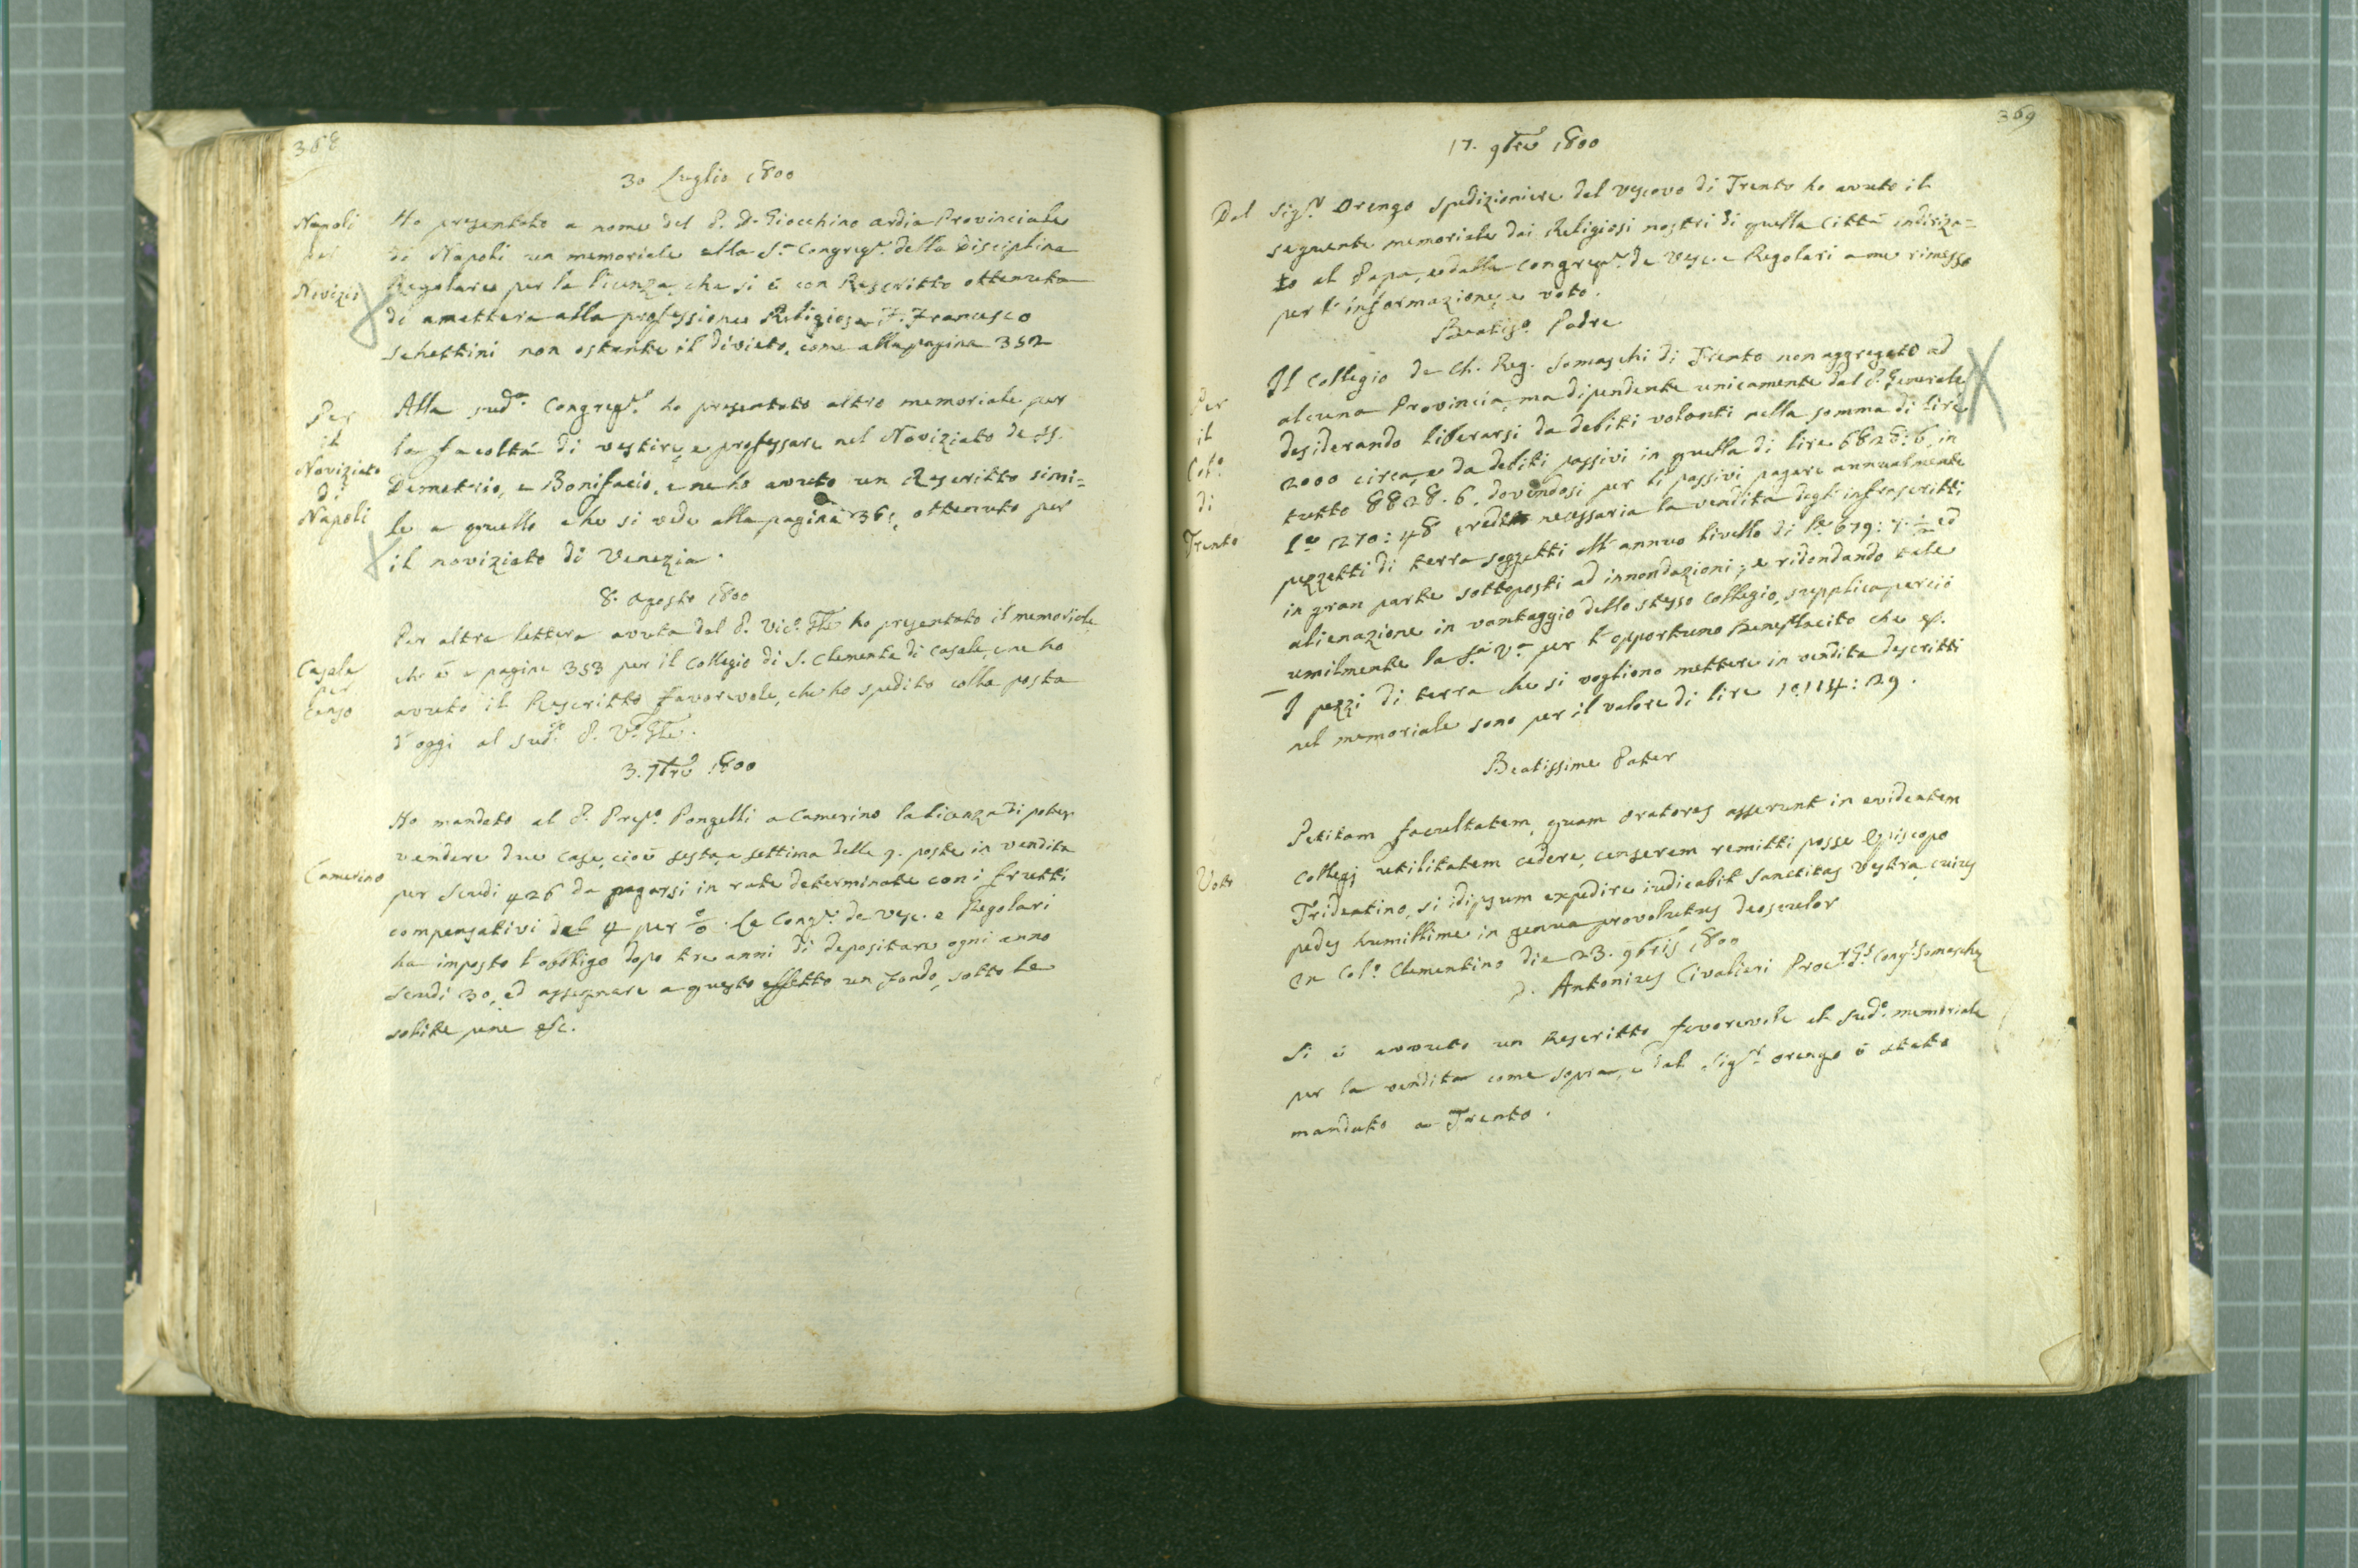 368
30 Luglio 1800
Napoli
pel
Novizio
Ho presentato a nome del P. D. Giocchino Ardia Provinciale
di Napoli un memoriale alla S.a Congreg.e della Disciplina
Regolare per la licenza, che si è con Rescritto ottenuta
di amettere alla professione Religiosa F. Francesco
Schettini non ostante il divieto, come alla pagina 352
Per
il
Noviziato
di
Napoli
Alla sud.a Congreg.e ho presentato altro memoriale per
la facoltá di vestire, e professare nel Noviziato de SS.
Demetrio, e Bonifacio, e ne ho avuto un Rescritto simi=
le a quello che si vede alla pagina 361, ottenuto per
il noviziato di Venezia.
8. Agosto 1800
Casale
per
Censo
Per altra lettera avuta dal P. Vic.o Gle ho presentato il memoriale
che è a pagina 353 per il Collegio di S. Clemente di Casale, e ne ho
avuto il Rescritto favorevole, che ho spedito colla posta
d'oggi al sud.o P. V.o Gle.
3. 7bre 1800
Camerino
Ho mandato al P. Prep.o Pongelli a Camerino la licenza di poter
vendere due case, cioè sesta, e settima delle 9. poste in vendita
per Scudi 426 da pagarsi in rate determinate con i frutti
compensativi del 4 per %. La Cong.e de Vesc. e Regolari
ha imposto l'obbligo dopo tre anni di depositare ogni anno
Scudi 30, ed assegnare a questo effetto un fondo, sotto le
solite pene etc.
369
17. 9bre 1800
Dal Sig.r Orengo Spedizioniere del Vescovo di Trento ho avuto il
seguente memoriale dai Religiosi nostri di quella Cittá indiriza=
to al Papa, e dalla Congreg.e de Vesc. e Regolari a me rimesso
per l'informazione, e voto.
Beatis.o Padre
Per
il
Col.o
di
Trento
Il Collegio de Ch. Reg. Somaschi di Trento non aggregato ad
alcuna Provincia, ma dipendente unicamente dal P. Generale
desiderando liberarsi da debiti volanti nella somma di lire
2000 circa, e da debiti passivi in quella di lire 6828:6, in
tutto 8828.6, dovendosi per li passivi pagare annualmente
l.e 1270:48 necessaria la vendita degli infrascritti
pezzetti di terra soggetti all'annuo livello di l.e 679:7 1/2 ed
in gran parte sottoposti ad innondazioni; e ridondando tale
alienazione in vantaggio dello stesso Collegio, supplica perciò
umilmente la S.a V.a per l'opportuno Beneplacito che etc.
I pezzi di terra che si vogliono mettere in vendita descritti
nel memoriale sono per il valore di lire 10114:29.
Beatissime Pater
Voto
Petitam facultatem, quam Oratores asserunt in evidentem
Collegj utilitatem cedere, censerem remitti posse Episcopo
Tridentino, si idipsum expedire iudicabit Sanctitas Vestra, cuius
pedes humillime in genua provolutus deosculor
In Col.o Clementino die 23. 9bris 1800
D. Antonius Civalieri Proc.r Glis Cong.s Somaschę
Si è avvuto un Rescritto favorevole al sud.o memoriale
per la vendita come sopra, e dal Sig.r Orengo è stato
mandato a Trento.